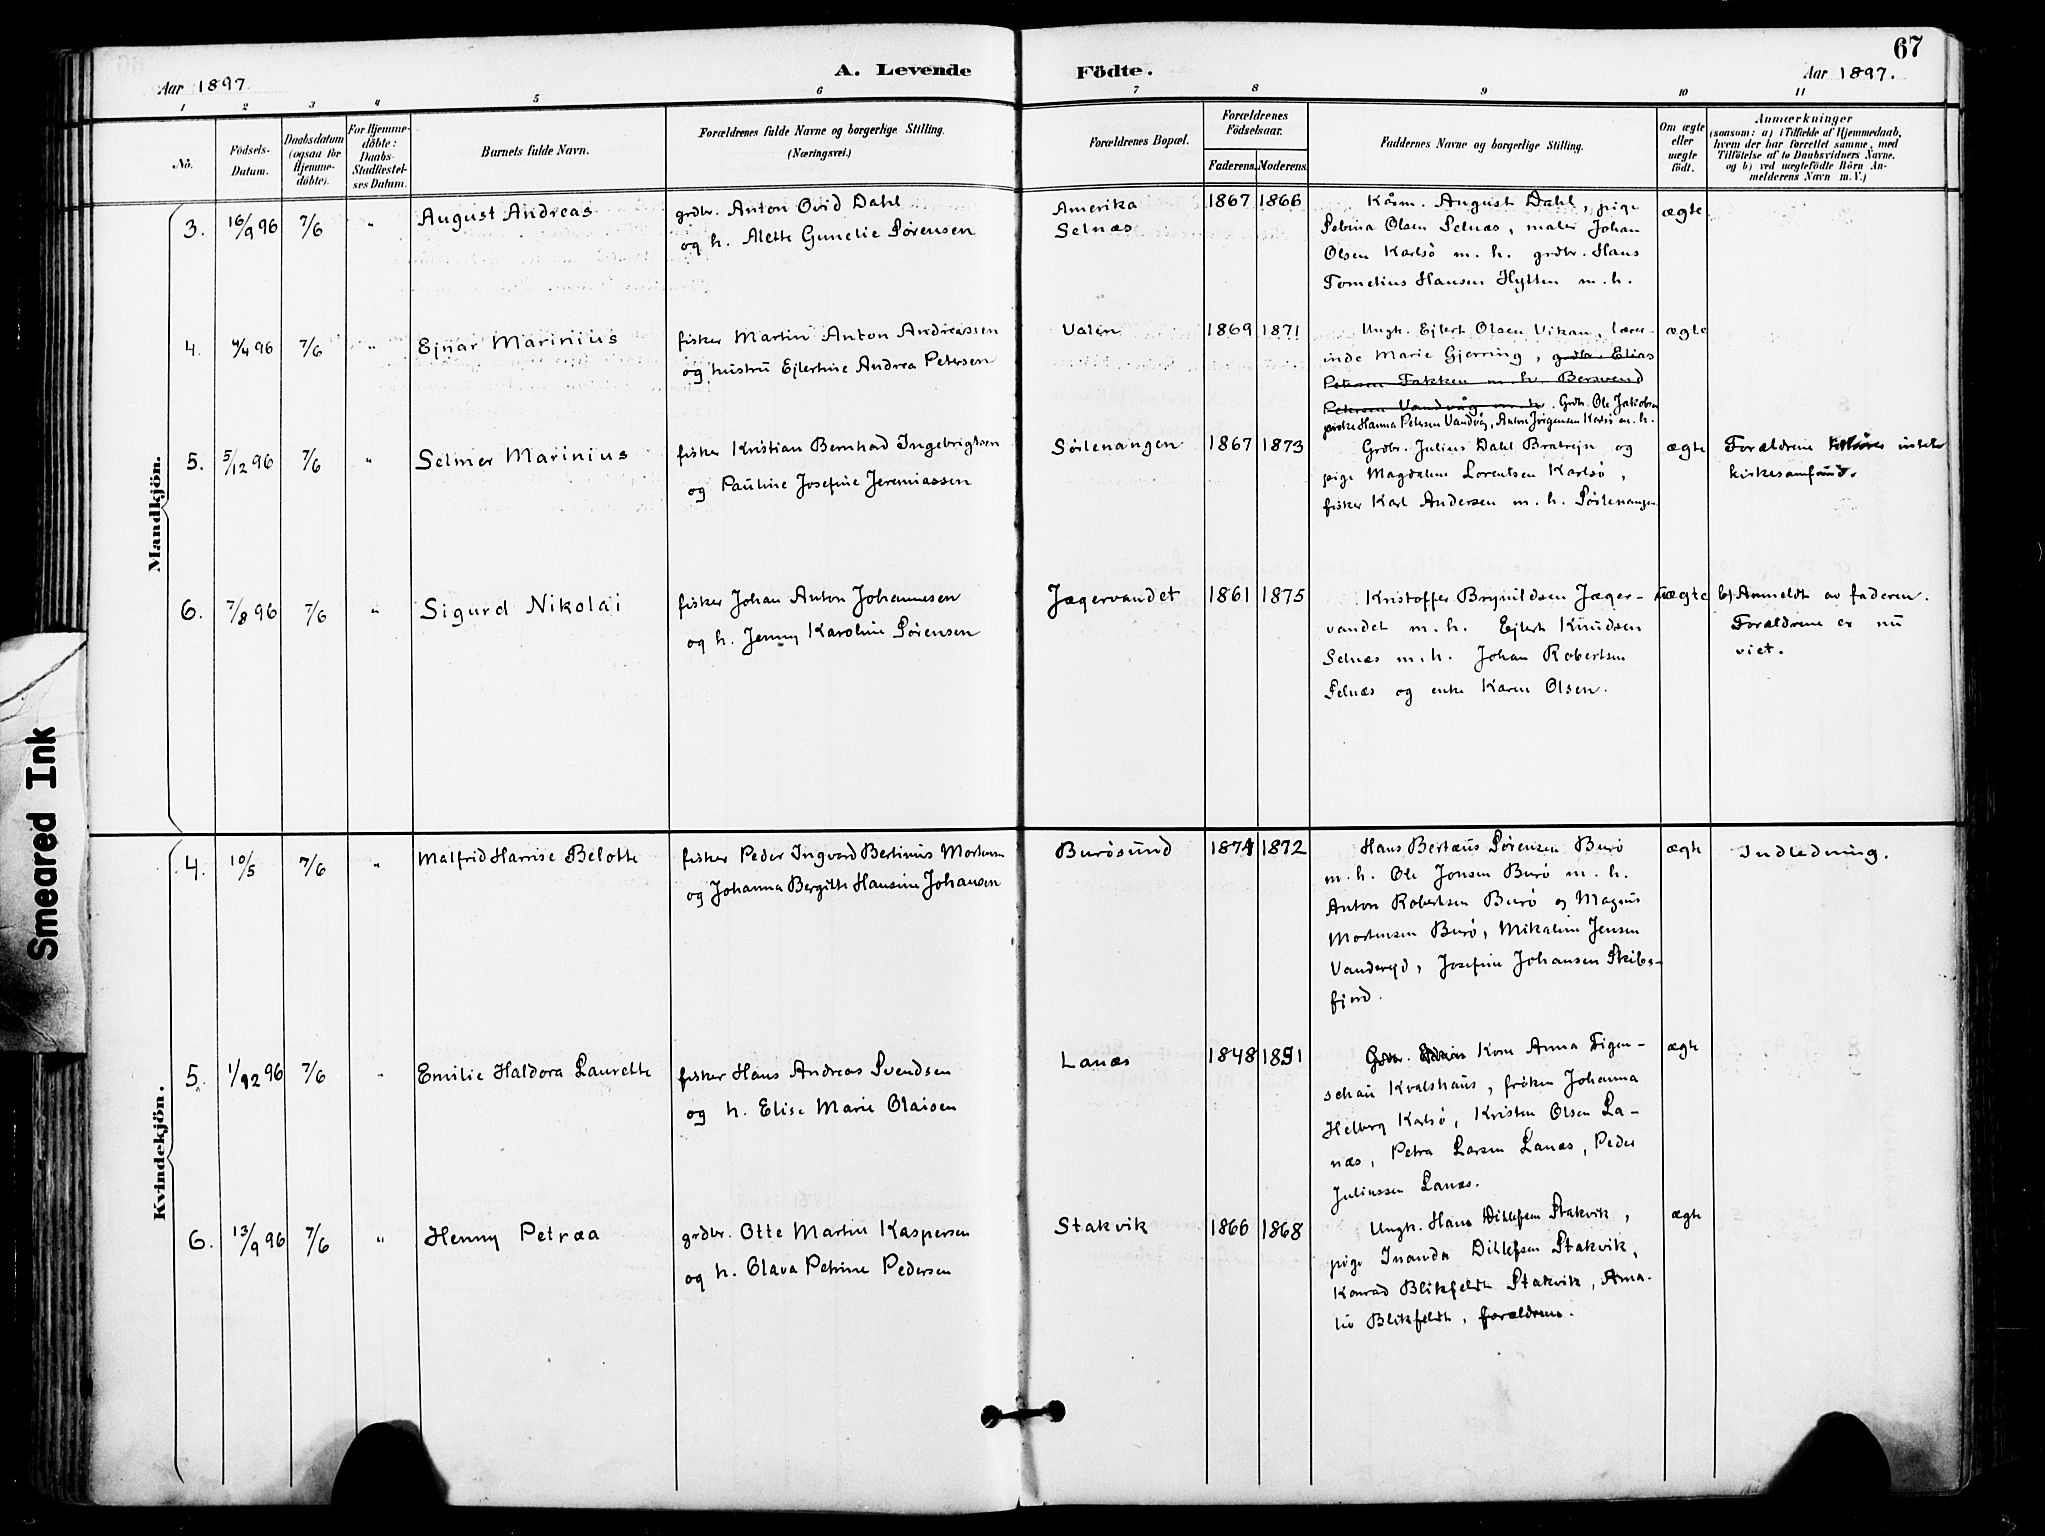 67
A. Levende Födte.
Aar 1897
Aar 1897.
1 2 3 4 5 6 7 8 9 10 11
Nö.
Födsels-
Datum.
Daabsdatum
(ogsaa for
Hjemme-
döbte).
For Hjemme-
döbte:
Daabs-
Stadfæstel-
ses Datum.
Barnets fulde Navn.
Forældrenes fulde Navne og borgerlige Stilling.
(Næringsvei.)
Forældrenes Bopæl.
Forældrenes
Födselsaar.
Faderens. Moderens.
Faddernes Navne og borgerlige Stilling.
Om ægte
eller
uægte
födt.
Anmærkninger
(saasom: a) i Tilfælde af Hjemmedaab,
hvem der har forrettet samme, med
Tilföielse af to Daabsvidners Navne.
og b) ved uægtefödte Börn An-
melderens Navn m. V.)
Mandkjön.
3. 16/9 96 7/6 " August Andreas
grdbr. Anton Ovid Dahl
og h. Alette Gunelie Sørensen
Amerika
Selnæs
1867 1866
Kårm. August Dahl, pige
Sebina Olsen Selnæs, maler Johan
Olsen Karlsö m. h. grdbr. Hans
Tomelius Hansen Hytten m. h.
ægte
4. 4/4 96 7/6 " Ejnar Marinius
fisker Martin Anton Andreassen
og hustru Ejlertine Andrea Petersen
Valen
1869 1871
Ungk. Ejlert Olsen Vikan, lærer-
inde Marie Gjerring, grdbr. Elias
Petersen Takken m. h. Bersvend
Petersen Vandvåg m. h. Grdb. Ole Jakobsen
Hanna Petersen Vandvåg, Anton Jörgensen Karlsö m. h.
ægte
5. 5/12 96 7/6 " Selmer Marinius
fisker Kristian Bernhard Ingebrigtsen
og Pauline Josefine Jeremiassen
Sörlenangen
1867 1873
Grdbr. Julius Dahl Bratrejn og
pige Magdalene Lorentsen Karlsö,
fisker Karl Andersen m. h. Sörlenangen.
ægte
Forældrene intet
kirkesamfund.
6. 7/8 96 7/6 " Sigurd Nikolai
fisker Johan Anton Johannesen
og h. Jenny Karoline Sørensen
Jægervandet
1861 1875
Kristoffer Brynildsen Jæger-
vandet m. h. Ejlert Knudsen
Selnæs m. h. Johan Robertsen
Selnæs og enke Karen Olsen.
uægte
b) Anmeldt av faderen.
Forældrene er nu
viet.
Kvindekjön.
4. 10/5 7/6 " Malfrid Hansine Belotte
fisker Peder Ingvard Bertinus Mortensen
og Johanna Bergitte Hansine Johansen
Burösund
1874 1872
Hans Bertæus Sørensen Burö
m. h. Ole Jonsen Burö m. h.
Anton Robertsen Burö og Magnus
Mortensen Burö, Mikaline Jensen
Vanderejd, Josefine Johansen Skibs-
fjord.
ægte
Indledning.
5. 1/12 96 7/6 " Emilie Haldora Laurette
fisker Hans Andreas Svendsen
og h. Elise Marie Olaisen
Lanæs
1848 1851
Kone Anna Figen-
schau Kvalshaus, fröken Johanna
Helberg Karlsö, Kristen Olsen La-
næs, Petra Larsen Lanæs, Peder
Juliussen Lanæs.
ægte
6. 13/9 96 7/6 " Henny Petræa
grdbr. Otte Martin Kaspersen
og h. Olava Petrine Pedersen
Stakvik
1866 1868
Ungk. Hans Ditlefsen Stakvik,
pige Inanda Ditlefsen Stakvik,
Konrad Blikfeldt Stakvik, Ama-
lie Blikfeldt, forældrene.
ægte
Smeared Ink